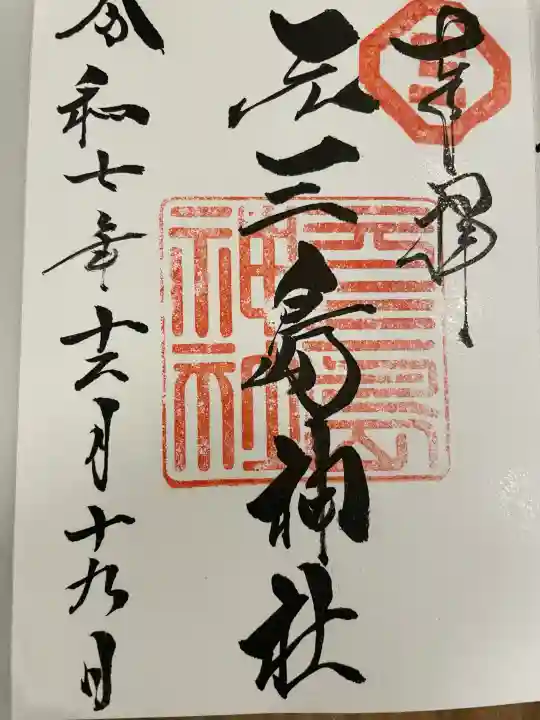 奉拝
元三島神社
令和七年十月十九日
元三島
神社